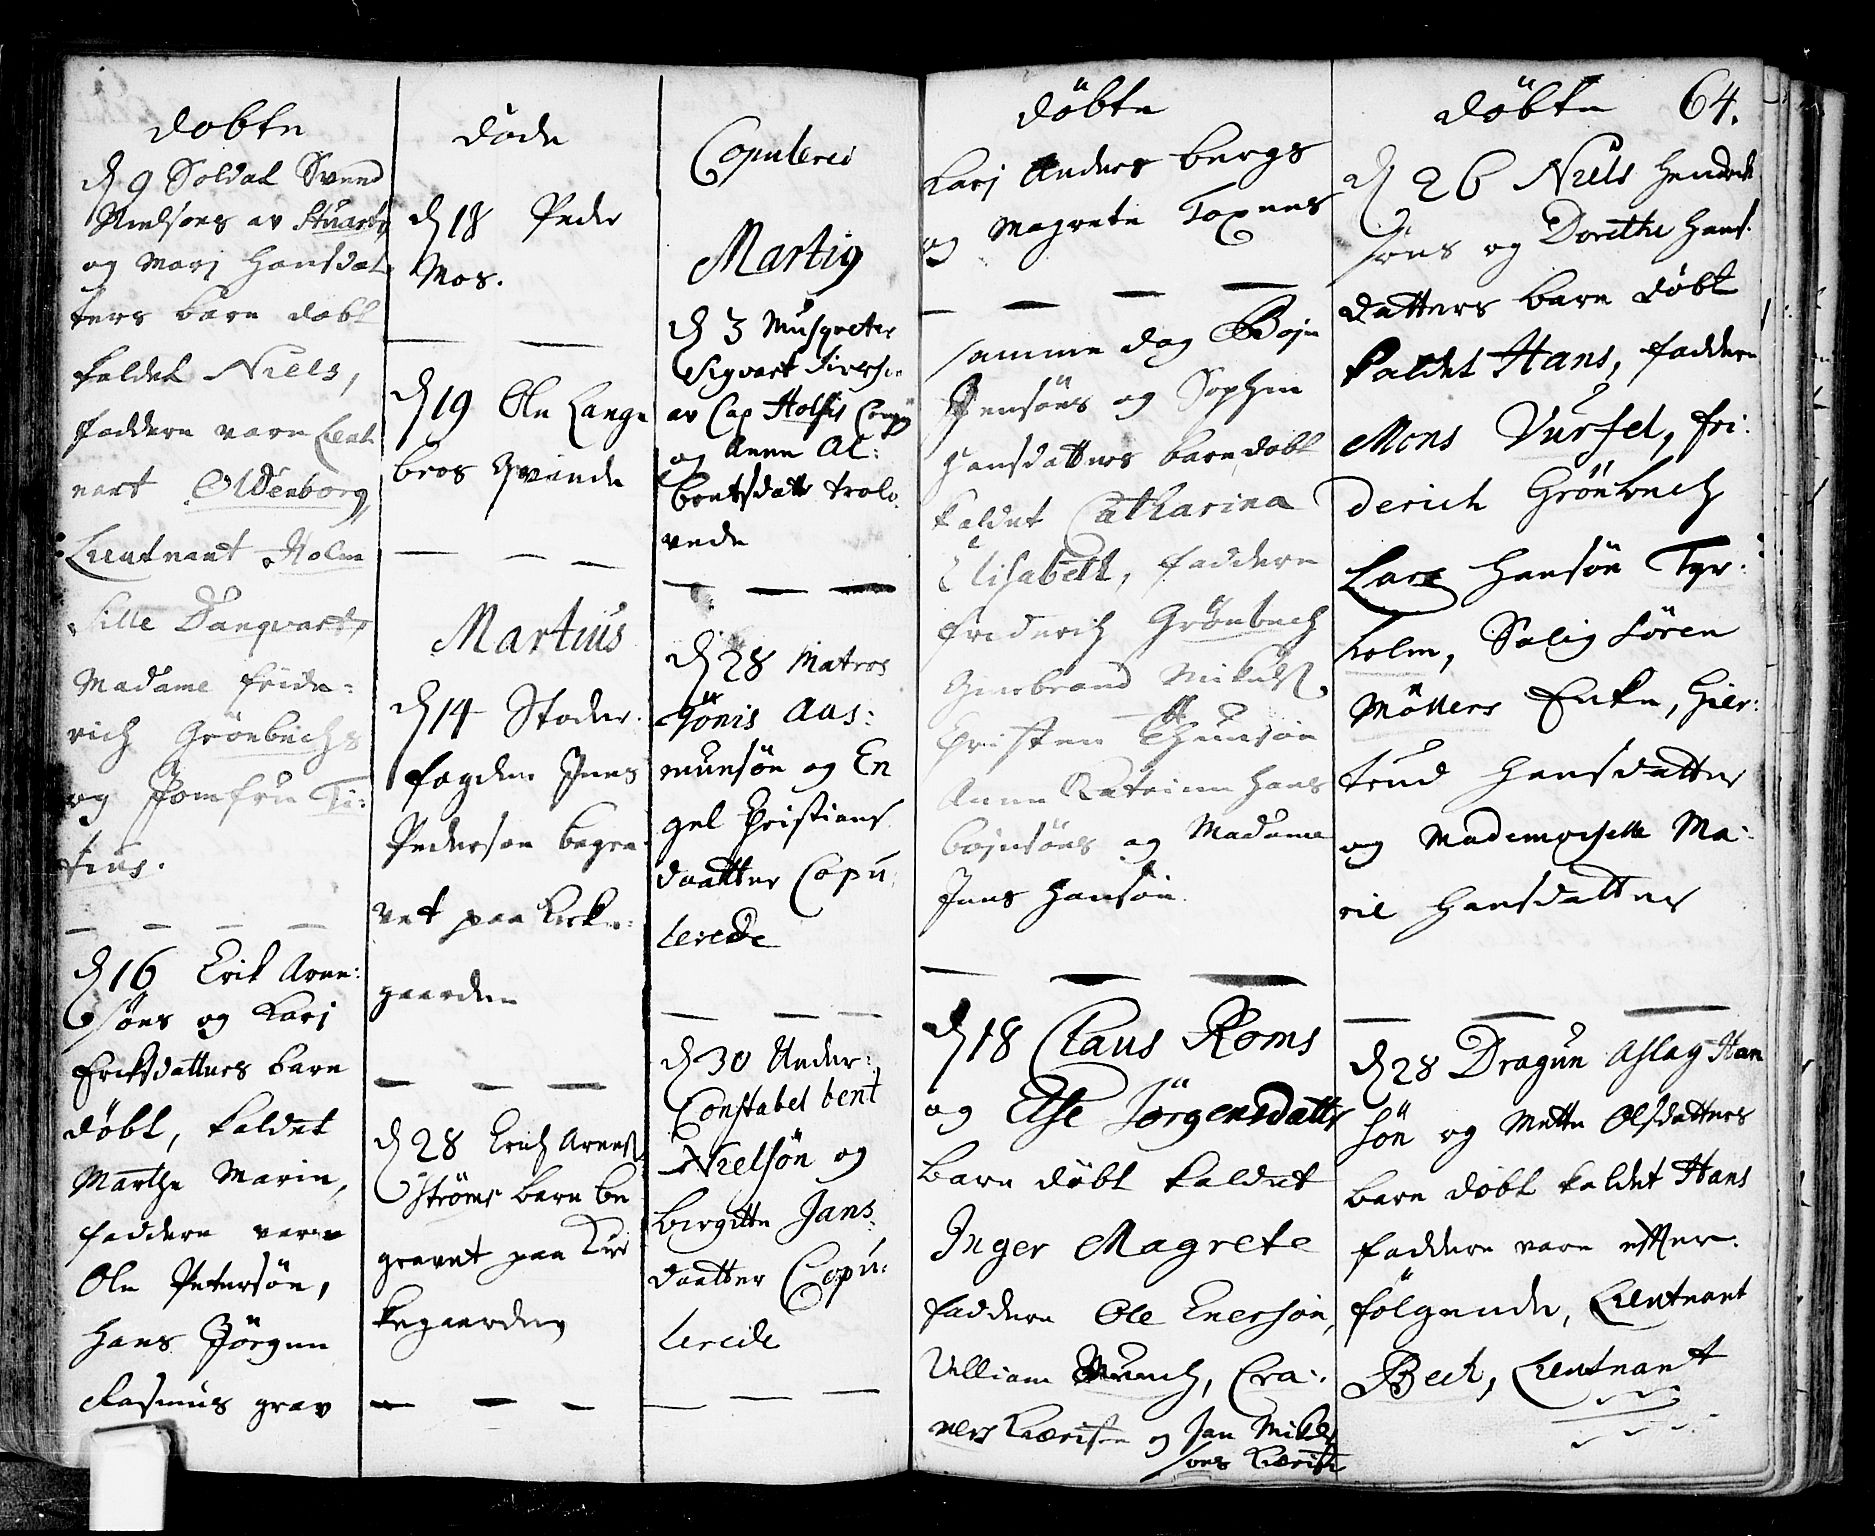 døbte
d 9 Soldat Svend
Nielsøns av Stuarts
og Mari Hansdat
ters barn døbt
kaldet Niels,
faddere vare Lieut
nant Oldenborg,
Lieutnant Holm
Sille Danqvarts
Madame Fride-
rich Grönbechs
og Jomfru Ti-
tius.
d 16 Erik Arne:
søns og Kari
Eriksdatters barn
döbt, kaldet
Marthe Marie,
faddere vare
Ole Petersön,
Hans Jörgen
Rasmus grav
døde
d 18 Peder
Mos.
d 19 Ole Lange
broes Qvinde
Martius
d 14 Stoder-
fogden Jens
Pedersøn begra-
vet paa Kirke-
gaarden
d 28 Erich Arnes
Ströms barn be
gravet paa Kir
kegaarden
Copulerei
Martiy
d 3 Musqveter
Sigvart
av Cap Holsts Comp
og Anne Al:
bertsdatter trolo-
vede
d 28 Matros
Jönis Aas:
munsön og En
gel Christians
daatter Copu
lerede
d 30 Under:
Constabel bent
Nielsön og
birgitte Jans:
daatter Copu:
lerede
döbte
Kari Anders bergs
og Magrete Toxnes
samme dag Boje
Jensöns og Sophie
Hansdatters barn döbt
kaldet Catharina
Elisabeth, faddere
Friderich Grönbech
Gunbrand Mikels
Christen
Anne Katrine Hans
bojesöns og Madame
Jens Hansön.
d 18 Claus Roms
og Else Jörgensdatter
barn döbt kaldet
Inger Magrete
faddere Ole Enersön,
Villiam Munch, Cra-
ners Kæriste og Jan Mikels
sons Kæriste
döbte 64.
d 26 Niels Hendrik
söns og Dorethe Hans
datters barn döbt
kaldet Hans, faddere
Mons Vurfel, Fri:
derich Grönbech
Lars Hansön Tyr:
holm, Salig Sören
Möllers Enke, Gier:
trud Hansdatter
og Mademoiselle Ma-
ril Hansdatter
d 28 Dragun Aslag Han
sön og Mette Olsdatters
barn döbt kaldet Hans
faddere vare efter-
fölgende, Lieutnant
Bech, Lieutnant